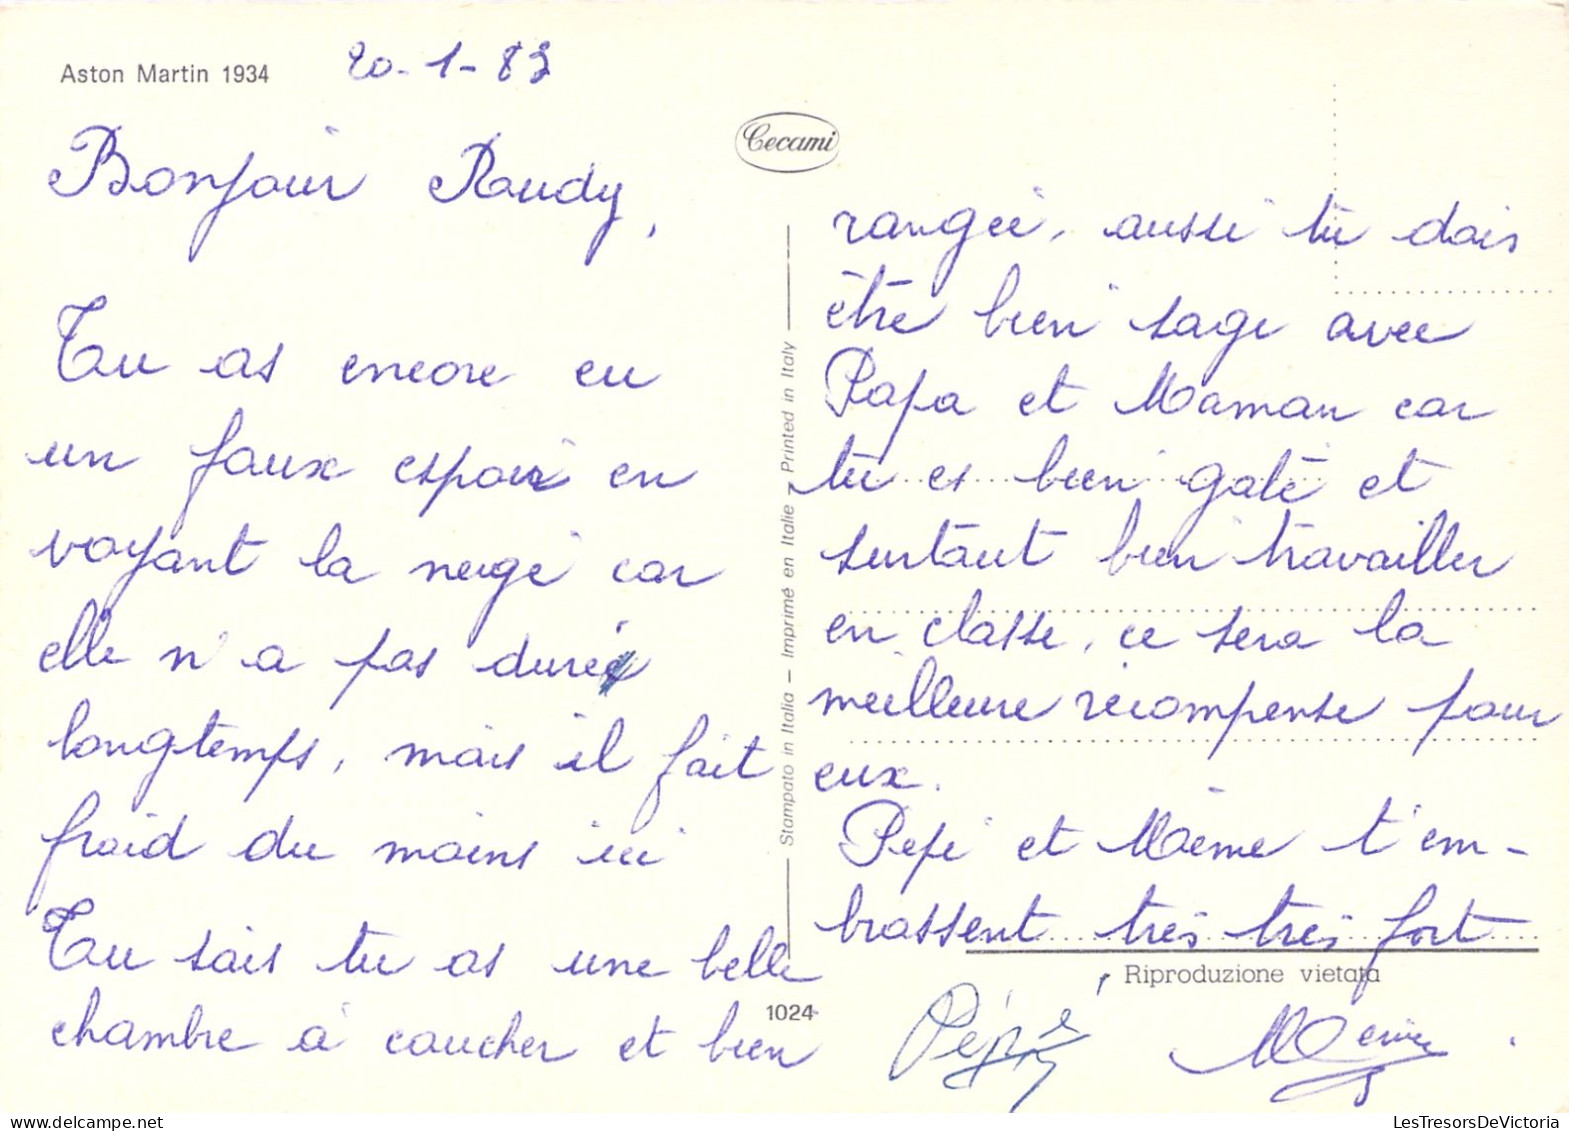 Aston Martin 1934
20-1-83
Cecami
Bonjour Roudy,
Tu as encore eu
un faux espoir en
voyant la neige car
elle n'a pas duré
longtemps, mais il fait
froid du moins ici
Tu sais tu as une belle
chambre à coucher et bien
Stampato in Italia – Imprimé en Italie – Printed in Italy
1024
rangée, aussi tu dois
être bien sage avec
Papa et Maman car
tu es bien gaté et
surtout bien travailler
en classe, ce sera la
meilleure récompense pour
eux.
Pépé et Mémé t'em-
brassent très très fort
Riproduzione vietata
Pépé, Mémé.
LesTresorsDeVictoria